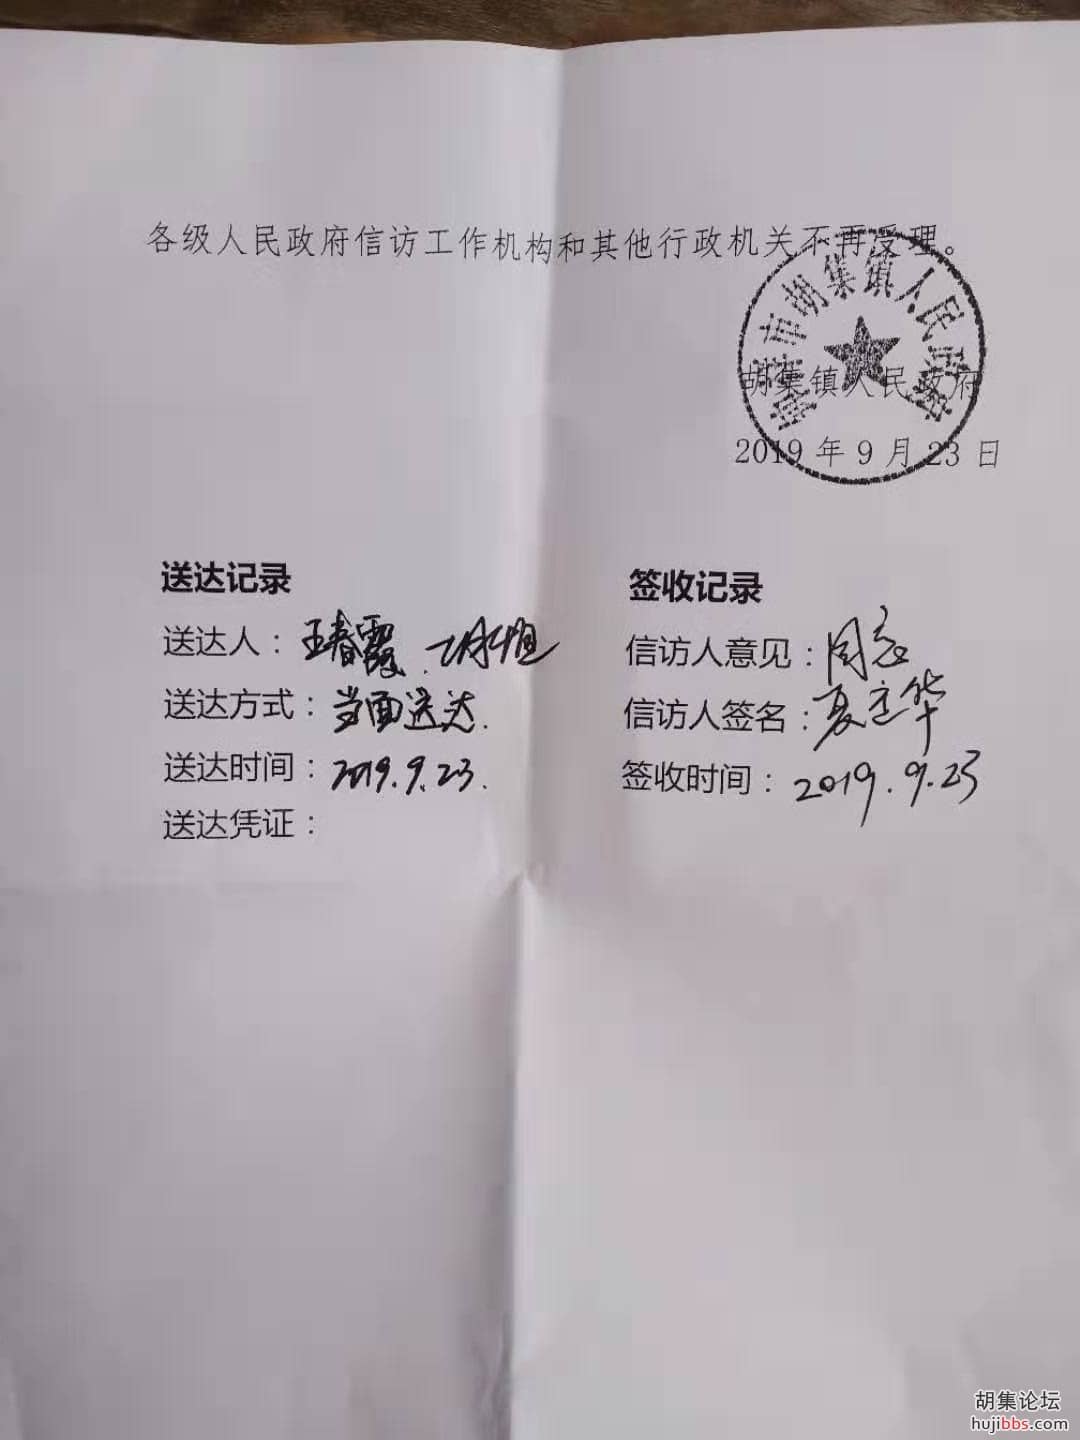 各级人民政府信访工作机构和其他行政机关不再受理。
钟祥市胡集镇人民政府
胡集镇人民政府
2019年9月23日
送达记录
送达人：王春霞、
送达方式：当面送达.
送达时间：2019.9.23.
送达凭证：
签收记录
信访人意见：同意
信访人签名：夏立华
签收时间：2019.9.23
胡集论坛
hujibbs.com